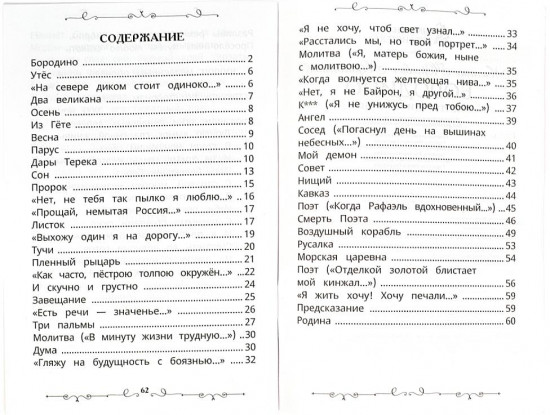 СОДЕРЖАНИЕ
Бородино ........ 2
Утёс ........ 6
«На севере диком стоит одиноко...» ........ 6
Два великана ........ 7
Осень ........ 8
Из Гёте ........ 8
Весна ........ 9
Парус ........ 10
Дары Терека ........ 10
Сон ........ 13
Пророк ........ 15
«Нет, не тебя так пылко я люблю...» .. 16
«Прощай, немытая Россия...» ........ 17
Листок ........ 17
«Выхожу один я на дорогу...» ........ 19
Тучи ........ 20
Пленный рыцарь ........ 21
«Как часто, пёстрою толпою окружён...» ... 22
И скучно и грустно ........ 24
Завещание ........ 25
«Есть речи — значенье...» ........ 26
Три пальмы ........ 27
Молитва («В минуту жизни трудную...») .. 30
Дума ........ 30
«Гляжу на будущность с боязнью...» ... 32
62
«Я не хочу, чтоб свет узнал...» ........ 33
«Расстались мы, но твой портрет...» .. 34
Молитва («Я, матерь божия, ныне
с молитвою...») ........ 35
«Когда волнуется желтеющая нива...» .. 35
«Нет, я не Байрон, я другой...» ........ 36
К*** («Я не унижусь пред тобою...») ... 37
Ангел ........ 39
Сосед («Погаснул день на вышинах
небесных...») ........ 40
Мой демон ........ 41
Совет ........ 42
Нищий ........ 43
Кавказ ........ 44
Поэт («Когда Рафаэль вдохновенный...») .. 45
Смерть Поэта ........ 46
Воздушный корабль ........ 49
Русалка ........ 53
Морская царевна ........ 54
Поэт («Отделкой золотой блистает
мой кинжал...») ........ 56
«Я жить хочу! Хочу печали...» ........ 59
Предсказание ........ 59
Родина ........ 60